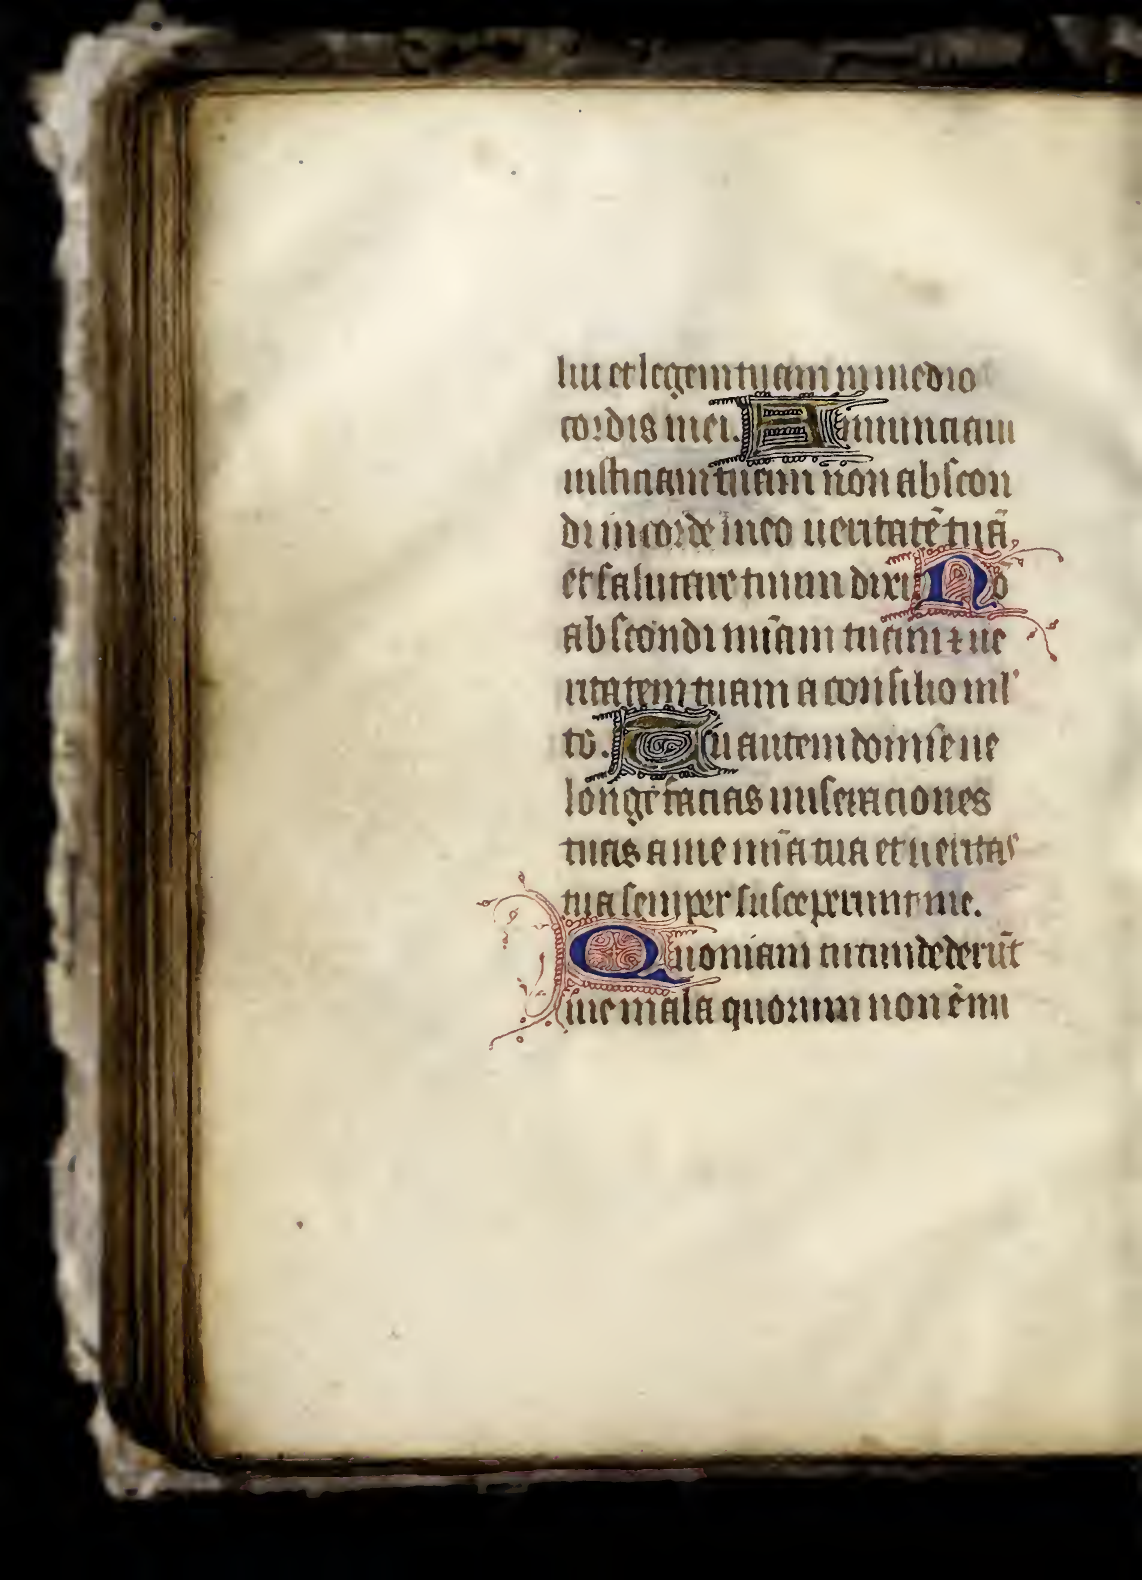 lui et legem tuam in medio
cordis mei. Annunciaui
iusticiam tuam non abscon
di in corde meo ueritatē tuā
et salutare tuum dixi. Nō
abscondi mīam tuam ⁊ ue
ritatem tuam a consilio ml'
to. Tu autem domine ne
longe facias miseraciones
tuas a me mīa tua et ueritas
tua semper susceperunt me.
Quoniam circumdederūt
me mala quorum non ē nu